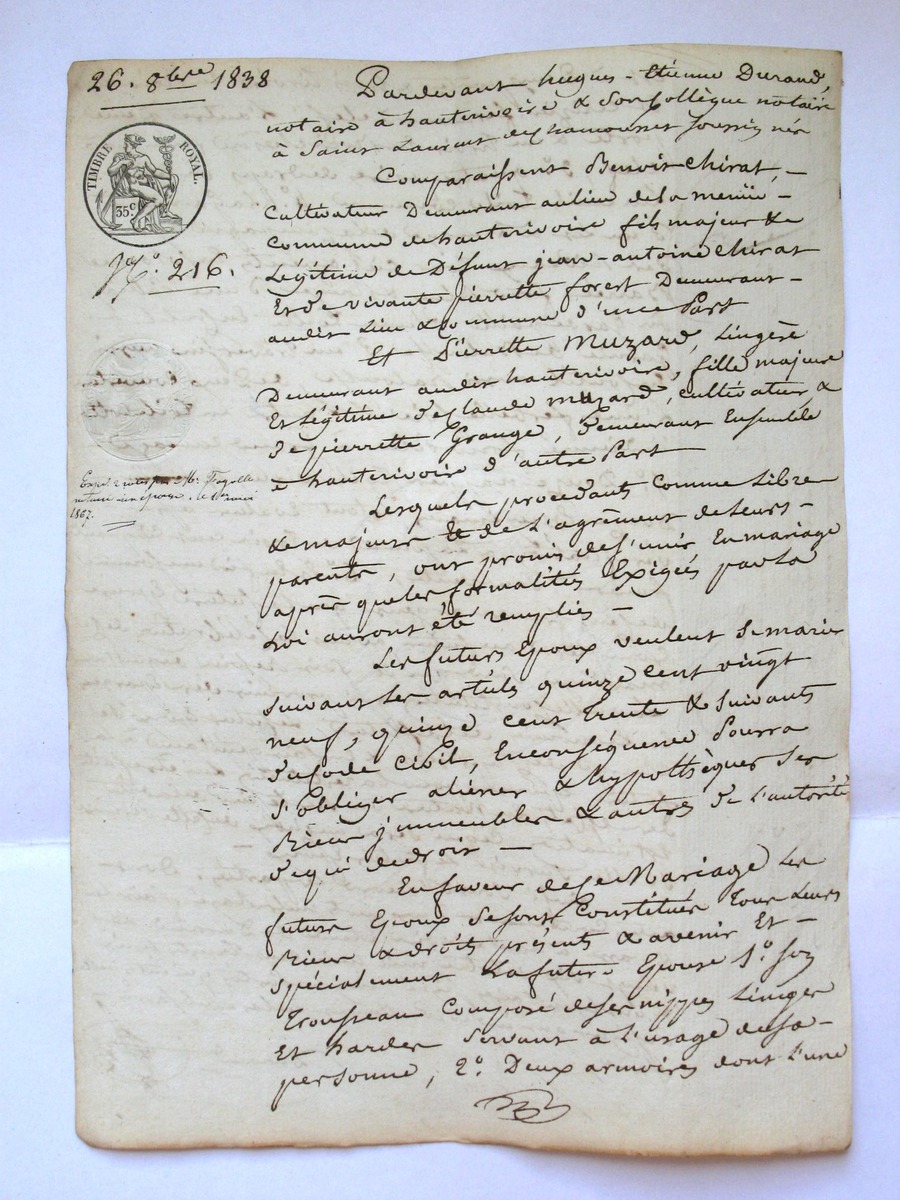 26. 8bre 1838
TIMBRE ROYAL.
35.c
No. 216.
Expé 2 rôles par Me. Fayolle
notaire
1867.
Pardevant hugues-Etienne Durand,
notaire à hauterivoire & son Collègue notaire
à Saint Laurent de Chamousset Soussignés
Comparaissent Benoit Chirat, -
Cultivateur Demeurant au lieu de la
Commune de hauterivoire fils majeur &
Légitime de Défunt jean-antoine Chirat
Et de vivante pierrette forest Demeurant -
audit Lieu & Commune d'une Part
Et Pierrette Muzard, Lingère
Demeurant audit hauterivoire, fille majeure
Et légitime de Claude Muzard, cultivateur, &
de pierrette Grange, demeurant Ensemble
à hauterivoire d'autre Part
Lesquels procédants comme Libres
& majeurs & de L'agrément de Leurs -
parents, ont promis de s'unir En mariage
après que les formalités Exigées par la
Loi auront été remplies -
Les futurs Epoux veulent se marier
suivant les articles quinze cent vingt
neuf, quinze cent trente & suivants
du Code Civil, En conséquence Pourra
s'obliger aliéner & hypothèquer ses
Biens jmmeubles & autres de L'autorité
de qui de droit -
En faveur de ce Mariage Les
futurs Epoux se sont Constitués Tous Leurs
Biens & droits présents & avenir Et -
spécialement La future Epouse 1.o Son
Trousseau Composé de ses nippes Linges
Et hardes servant à L'usage de sa -
personne, 2.o Deux armoires dont L'une